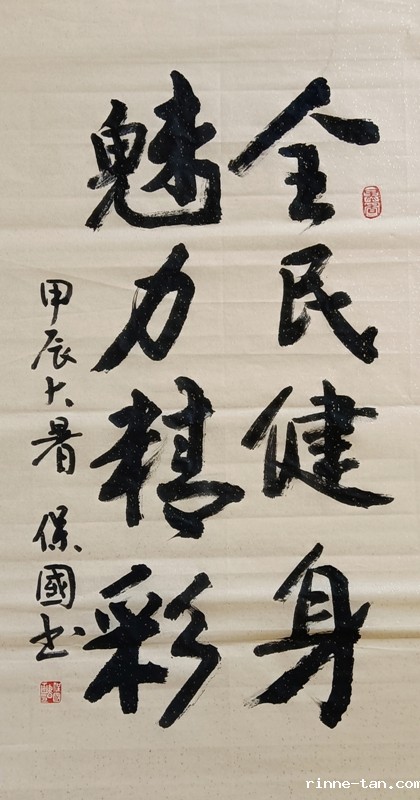 全民健身
魅力精彩
甲辰大暑 保國书
rinne-tan.com